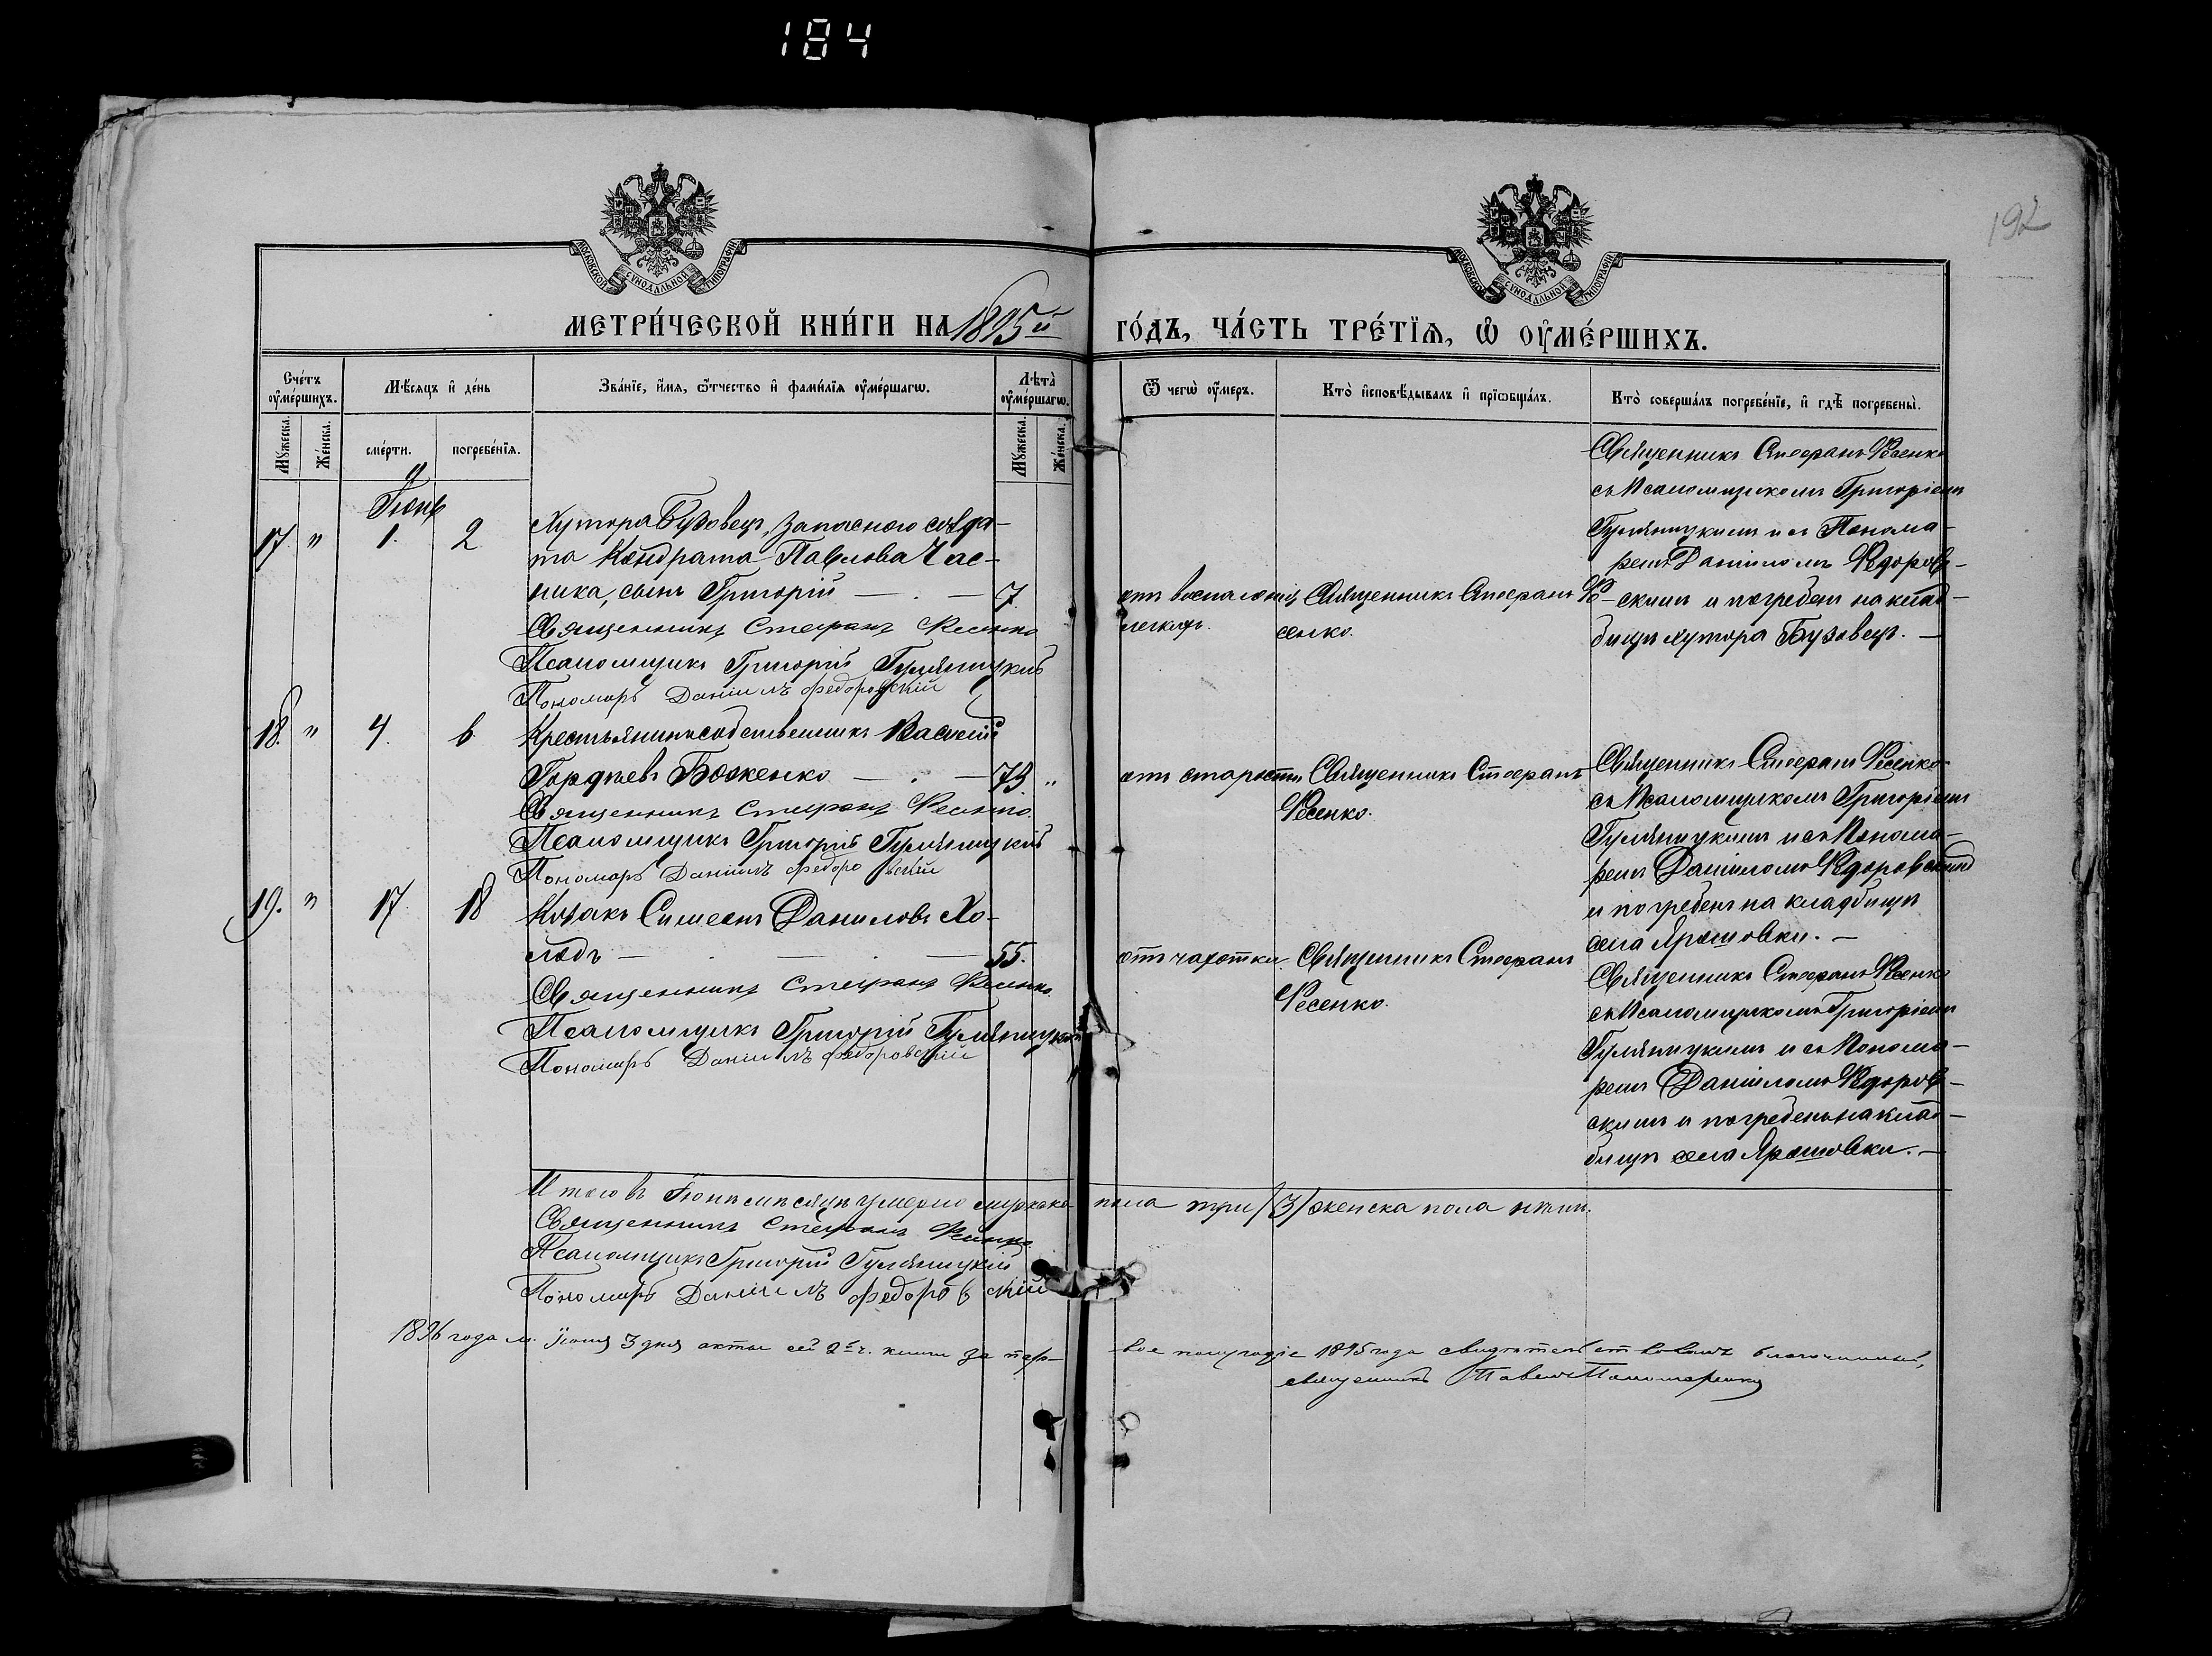 184
192
МОСКОВСКОЙ СУНОДАЛЬНОЙ ТИПОГРАФІИ
МОСКОВСКОЙ СУНОДАЛЬНОЙ ТИПОГРАФІИ
МЕТРИ́ЧЕСКОЙ КНИ́ГИ НА 1895й ГО́ДЪ, ЧА́СТЬ ТРЕ́ТЇѦ, Ѡ ОУ҆МЕ́РШИХЪ.
Сче́тъ оу҆ме́ршихъ.
Мѣ́сяцъ и҆ де́нь
Зва́нїе, и҆́мя, ѻ҆́тчество и҆ фами́лїя оу҆ме́ршагѡ.
Лѣта̀ оу҆ме́ршагѡ.
Ѿ чегѡ̀ оу҆́меръ.
Кто̀ и҆сповѣ́дывалъ и҆ прїѡбща́лъ.
Кто̀ соверша́лъ погребе́нїе, и҆ гдѣ̀ погребены̀.
Мꙋ́жеска.
Же́нска.
сме́рти.
погребе́нїя.
Мꙋ́жеска.
Же́нска.
Іюнь
17. " 1. 2
Хутора Бузовецъ, запаснаго солда-
та Кондрата Павлова Час-
ника, сынъ Григорій — . — 7.
Священникъ Стефанъ Фесенко
Псаломщикъ Григорій Гуляницкій
Пономарь Даніилъ Федоровскій
отъ воспаленія
легкихъ.
Священникъ Стефанъ Фе-
сенко.
Священникъ Стефанъ Фесенко
съ Псаломщикомъ Григоріемъ
Гуляницкимъ и съ Понома-
ремъ Даніиломъ Федоров-
скимъ и погребенъ на клад-
бищѣ хутора Бузовецъ. —
18. " 4. 6
Крестьянинъ собственникъ Василій
Гордѣевъ Боженко — . — 73 "
Священникъ Стефанъ Фесенко.
Псаломщикъ Григорій Гуляницкій
Пономарь Даніилъ Федоровскій
отъ старости
Священникъ Стефанъ
Фесенко.
Священникъ Стефанъ Фесенко
съ Псаломщикомъ Григоріемъ
Гуляницкимъ и съ Понома-
ремъ Даніиломъ Федоровскимъ
и погребенъ на кладбищѣ
села Ярошовки. —
19. " 17. 18
Козакъ Симеонъ Даниловъ Хо-
лодъ — . — . — 55.
Священникъ Стефанъ Фесенко
Псаломщикъ Григорій Гуляницкій
Пономарь Даніилъ Федоровскій
отъ чахотки.
Священникъ Стефанъ
Фесенко.
Священникъ Стефанъ Фесенко
съ Псаломщикомъ Григоріемъ
Гуляницкимъ и съ Понома-
ремъ Даніиломъ Федоров-
скимъ и погребенъ на клад-
бищѣ села Ярошовки. —
Итого въ Іюнѣ мѣсяцѣ умерло мужска пола три /3/ женска пола нѣтъ.
Священникъ Стефанъ Фесенко
Псаломщикъ Григорій Гуляницкій
Пономарь Даніилъ Федоровскій
1896 года м. Іюня 3 дня акты сей книги за пер-
вое полугодіе 1895 года свидѣтельствовалъ благочинный,
священникъ Павелъ Пономаренко